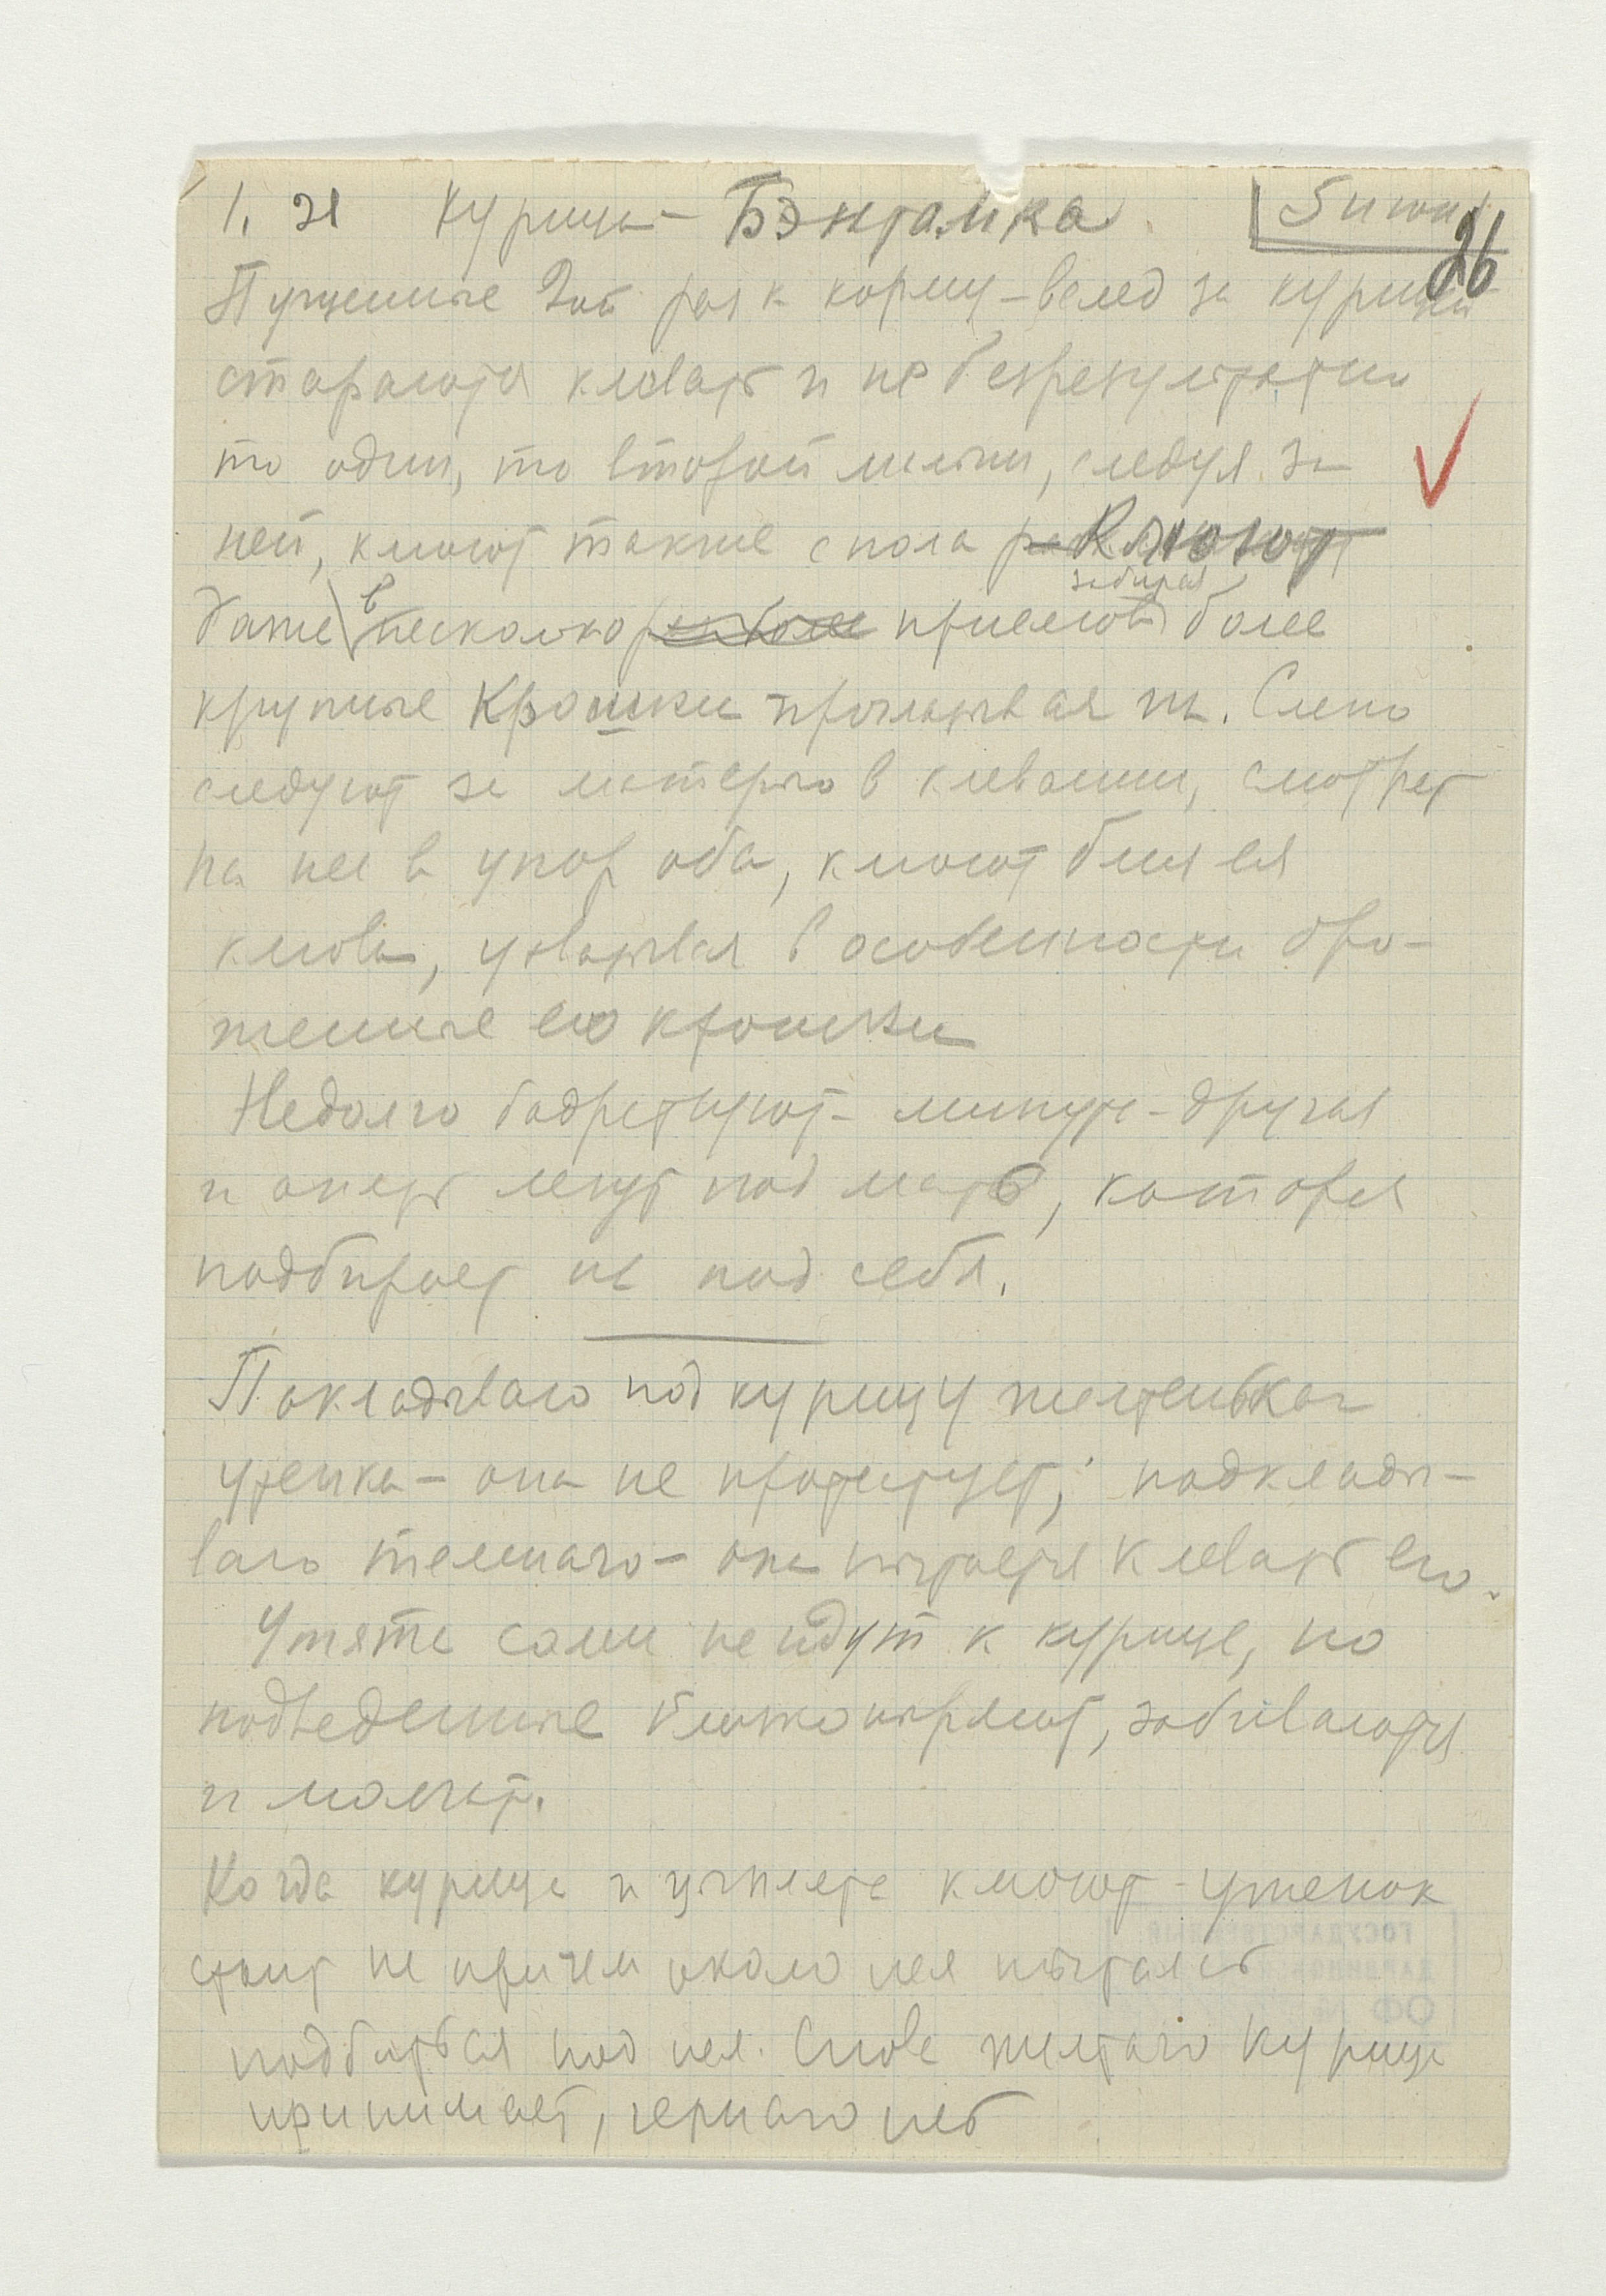 1. Эл Курица – Бэнтамка. 5 июн.
26
Пущенные 2ой раз к корму – вслед за курицей
стараются клевать и не безрезультатно
то один, то второй мелочи, следуя за
ней, клюют также с пола Клюют
даже в несколько приемов забирая более
крупные Крошки проглатывая их. Слепо
следуют за матерью в клевании, смотрят
на нее в упор оба, клюют близ ея
клюва, ухватывая в особенности бро-
шенные ею крошки
Недолго бодрствуют – минута – другая
и опять лезут под мать, которая
подбирает их под себя.
Покладываю под курицу желтенькаг
утенка – она не протестует; подклады-
ваю темнаго – она пытается клевать его.
Утята сами не идут к курице, но
подведенные близко ныряют, забиваются
и молчат.
Когда курица и цыплята клюют – утенок
стоит не причем около нея пытаясь
подбиться под нея. Снова желтаго курица
принимает, чернаго нет
ГОСУДАРСТВЕННЫЙ
ДАРВИНОВ
ОФ №